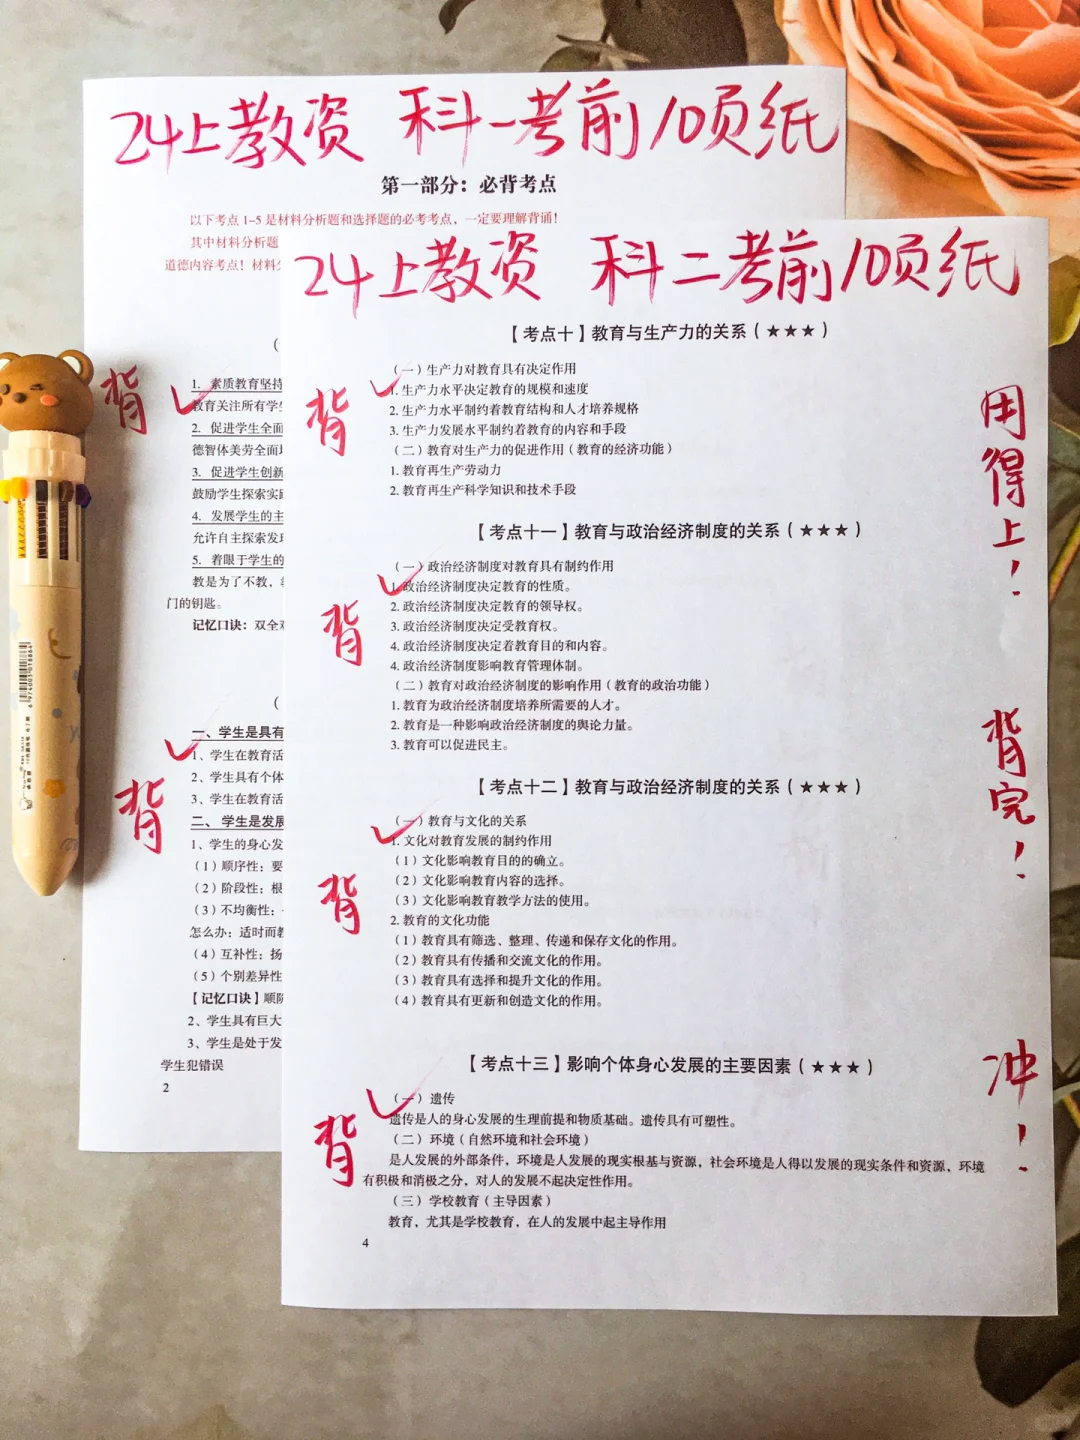 24上教资 科一考前10页纸
第一部分：必背考点
以下考点1-5是材料分析题和选择题的必考考点，一定要理解背诵！
其中材料分析题
道德内容考点！材料分
背
1. 素质教育坚持
教育关注所有学生
2. 促进学生全面
德智体美劳全面
3. 促进学生创新
鼓励学生探索实践
4. 发展学生的主
允许自主探索发现
5. 着眼于学生的
教是为了不教，
门的钥匙。
记忆口诀：双全
背
一、学生是具有
1、学生在教育活
2、学生具有个体
3、学生在教育活
二、 学生是发展
1、学生的身心发
（1）顺序性：要
（2）阶段性：根
（3）不均衡性：
怎么办：适时而教
（4）互补性：扬
（5）个别差异性
【记忆口诀】顺阶
2、学生具有巨大
3、学生是处于发
学生犯错误
2
24上教资 科二考前10页纸
【考点十】教育与生产力的关系（★★★）
背
（一）生产力对教育具有决定作用
1. 生产力水平决定教育的规模和速度
2. 生产力水平制约着教育结构和人才培养规格
3. 生产力发展水平制约着教育的内容和手段
（二）教育对生产力的促进作用（教育的经济功能）
1. 教育再生产劳动力
2. 教育再生产科学知识和技术手段
【考点十一】教育与政治经济制度的关系（★★★）
背
（一）政治经济制度对教育具有制约作用
1. 政治经济制度决定教育的性质。
2. 政治经济制度决定教育的领导权。
3. 政治经济制度决定受教育权。
4. 政治经济制度决定着教育目的和内容。
4. 政治经济制度影响教育管理体制。
（二）教育对政治经济制度的影响作用（教育的政治功能）
1. 教育为政治经济制度培养所需要的人才。
2. 教育是一种影响政治经济制度的舆论力量。
3. 教育可以促进民主。
【考点十二】教育与政治经济制度的关系（★★★）
背
（一）教育与文化的关系
1. 文化对教育发展的制约作用
（1）文化影响教育目的的确立。
（2）文化影响教育内容的选择。
（3）文化影响教育教学方法的使用。
2. 教育的文化功能
（1）教育具有筛选、整理、传递和保存文化的作用。
（2）教育具有传播和交流文化的作用。
（3）教育具有选择和提升文化的作用。
（4）教育具有更新和创造文化的作用。
【考点十三】影响个体身心发展的主要因素（★★★）
背
（一）遗传
遗传是人的身心发展的生理前提和物质基础。遗传具有可塑性。
（二）环境（自然环境和社会环境）
是人发展的外部条件，环境是人发展的现实根基与资源，社会环境是人得以发展的现实条件和资源，环境
有积极和消极之分，对人的发展不起决定性作用。
（三）学校教育（主导因素）
教育，尤其是学校教育，在人的发展中起主导作用
4
用得上！
背完！
冲！